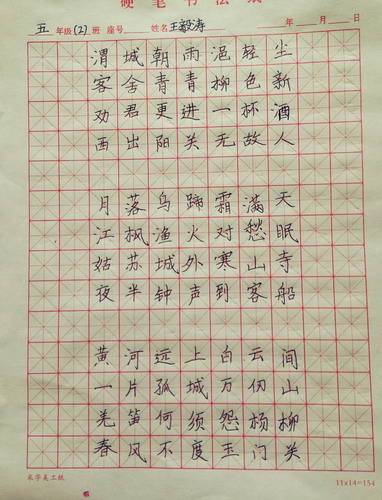 硬笔书法纸
五年级(2)班 座号 姓名王毅涛 年 月 日
渭城朝雨浥轻尘
客舍青青柳色新
劝君更进一杯酒
西出阳关无故人
月落鸟蹄霜满天
江枫渔火对愁眠
姑苏城外寒山寺
夜半钟声到客船
黄河远上白云间
一片孤城万仞山
羌笛何须怨杨柳
春风不度玉门关
米字美工纸 11x14=154